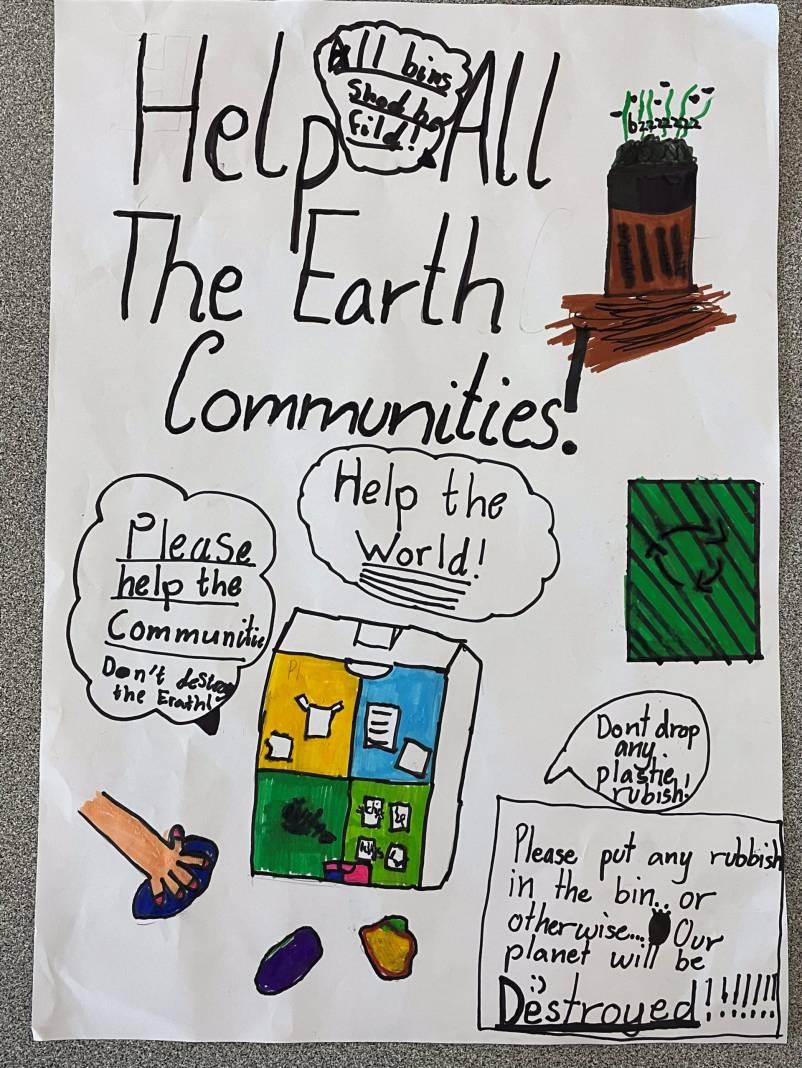 Help All
All bins
Shod be
fild!
bzzzzzzz
The Earth
Communities!
Help the
World!
Please
help the
Communitie
Don't destroy
the Erath!
Dont drop
any
plastic
rubish!
Please put any rubbish
in the bin.. or
otherwise... Our
planet will be
Destroyed!!!!!!!